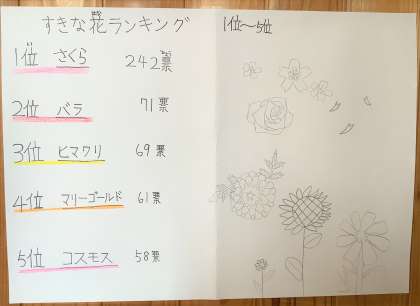 すきな花ランキング
1位 さくら 242票
2位 バラ 71票
3位 ヒマワリ 69票
4位 マリーゴールド 61票
5位 コスモス 58票
1位〜5位